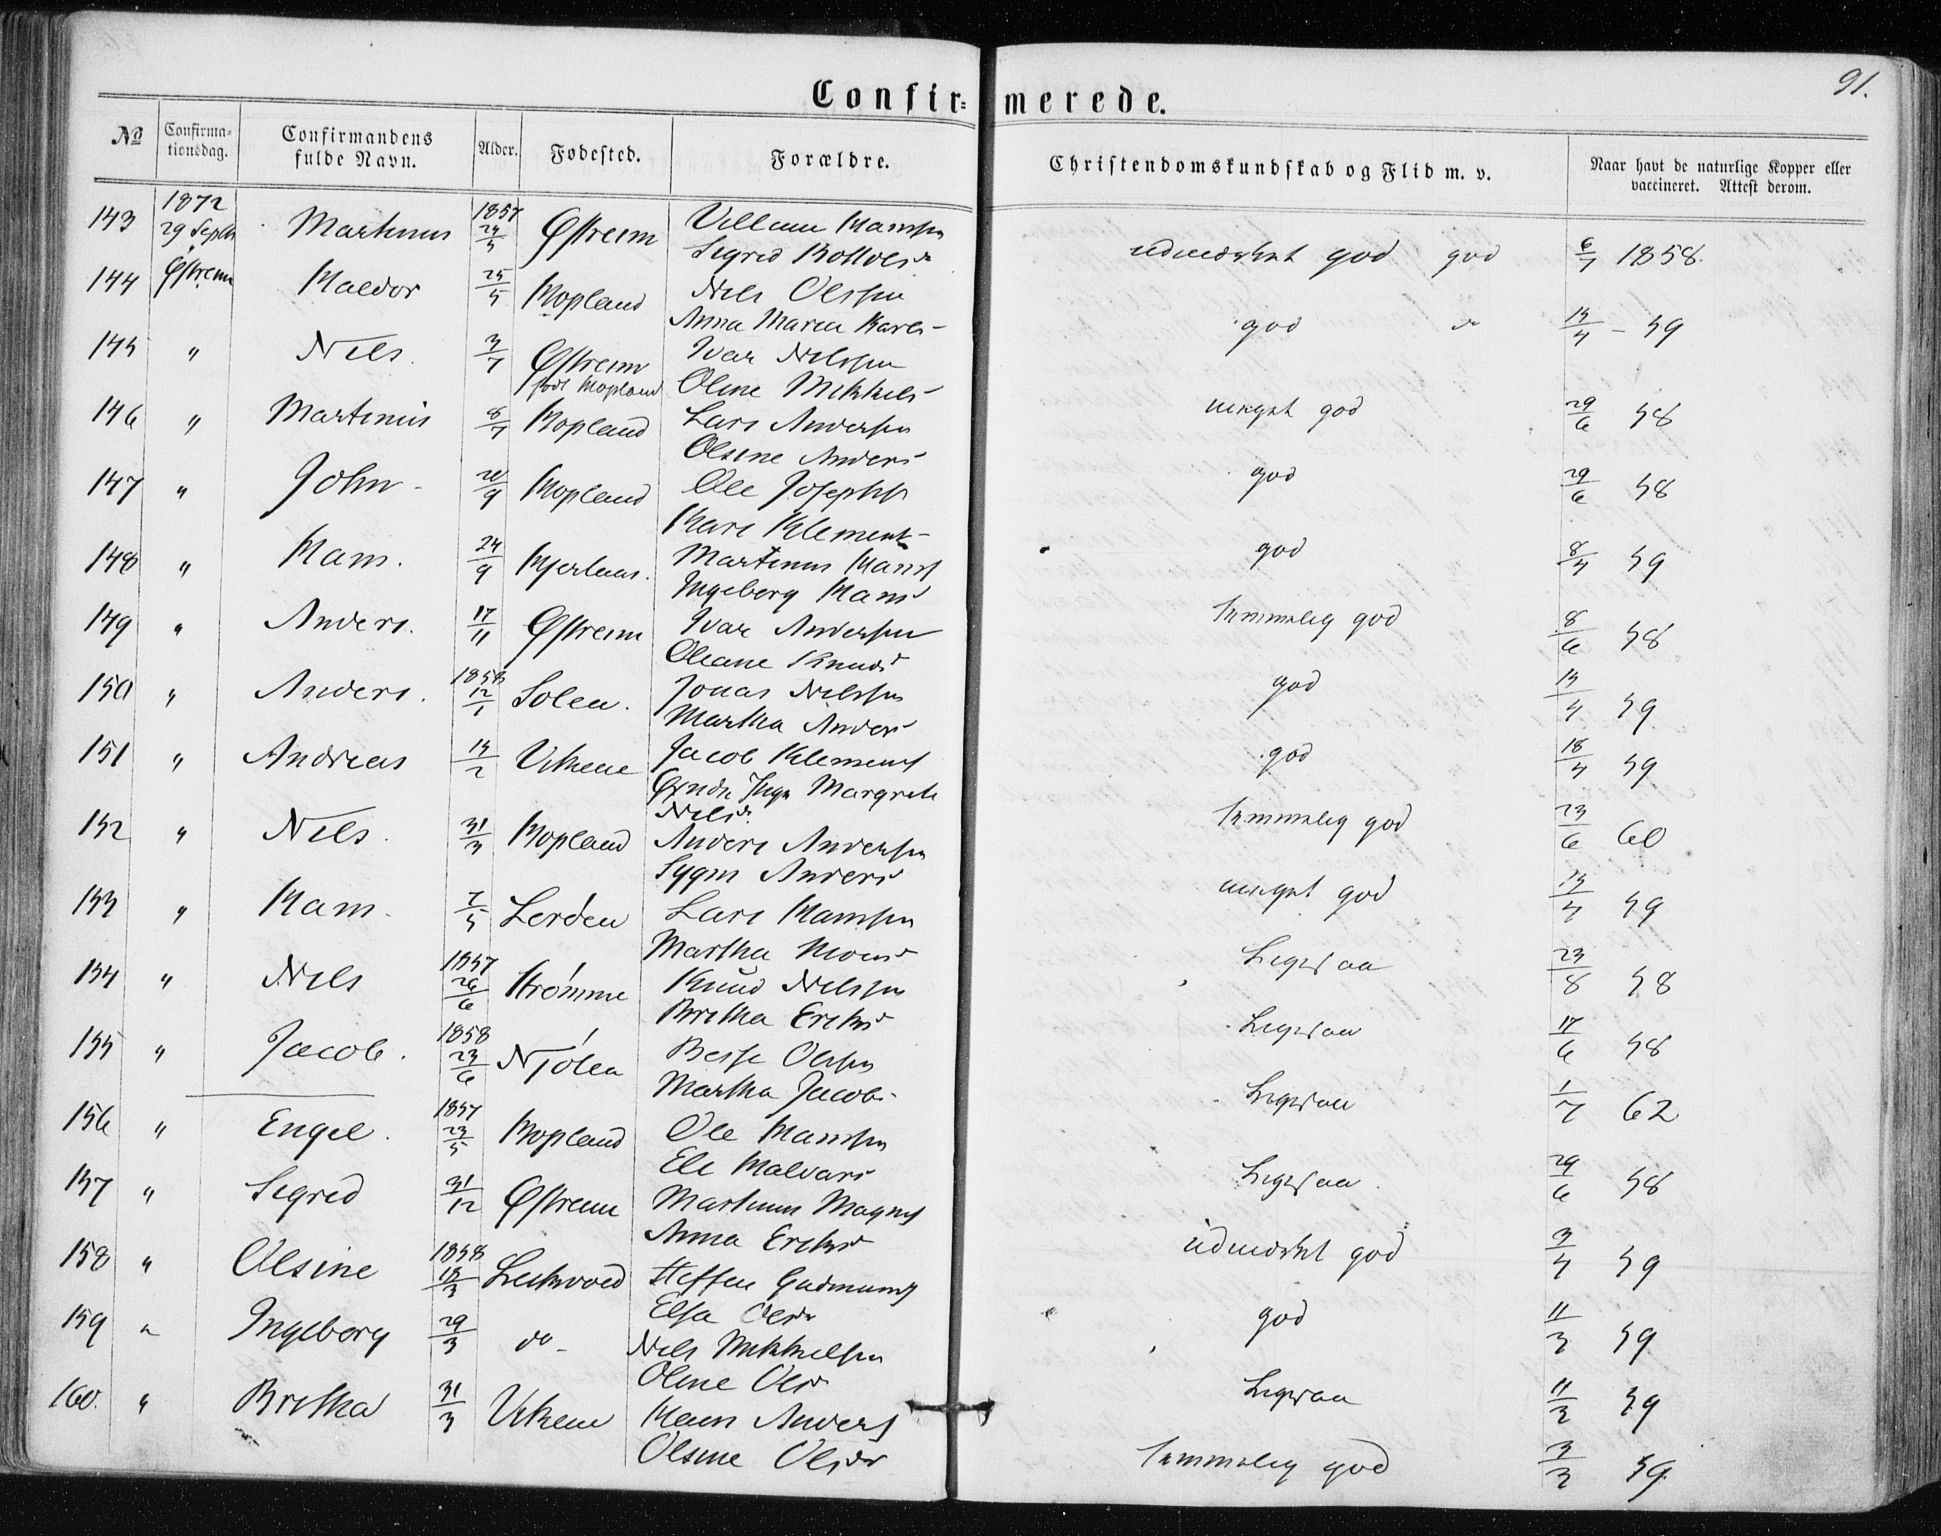 Confirmerede.
91.
№ Confirma-tionsdag. Confirmandens fulde Navn. Alder. Fødested. Forældre. Christendomskundskab og Flid m. v. Naar havt de naturlige Kopper eller vaccineret. Attest derom.
143 1872 29 Septbr Østreim Martinus 1857 24/5 Østreim Villum Hansen udmærket god god 6/7 1858.
Sigrid
144 Haldor 25/5 Hopland Nils Olssen god do 14/4 - 59
Anna Maria Karls-
145 " Nils. 3/7 Østreim Ivar Nilssen meget god 29/6 58
født Hopland Oline Mikkels-
146 " Martinus 8/7 Hopland Lars Andersen god 29/6 58
Olsine Anders-
147 " John - 20/9 Hopland Ole Josephs god 8/4 59
Kari Klement-
148 " Hans. 24/9 Martinus Hans temmelig god 8/6 58
Ingeborg Hans
149 " Anders. 17/11 Østreim Ivar Andersen god 14/4 59
Oleane Knuds
150 " Anders. 1858 12/1 Solen. Jonas Nilssen god 18/4 59
Martha Anders
151 " Andreas 14/2 Vikene Jacob Klements temmelig god 23/6 60
Margrete
Nilsd.
152 " Nils. 31/3 Hopland Anders Andersen meget god 14/4 59
Anders
153 " Hans. 7/5 Leröen Lars Hanssen Ligesaa 23/8 58
Martha Mons
154 " Nils 1857 26/6 Strömme Knud Nilssen Ligesaa 17/6 58
Britha Eriks
155 " Jacob. 1858 23/6 Njölen Olssen Ligesaa 1/7 62
Martha Jacobs-
156 " Engel. 1857 23/5 Hopland Ole Hanssen Ligesaa 29/6 58
Eli Halvars
157 " Sigrid 31/12 Østreim Martinus Magnus udmærket god 9/4 59
Anna Eriks
158 " Olsine 1858 18/3 Leikvold Steffen Gudmunds god 11/3 59
Elsa Olsd
159 " Ingeborg 29/3 do - Nils Mikkelsen Ligesaa 11/3 59
Oline Ols
160. " Britha 31/3 Vikene Hans Anders temmelig god 3/3 59
Olsine Olsdr